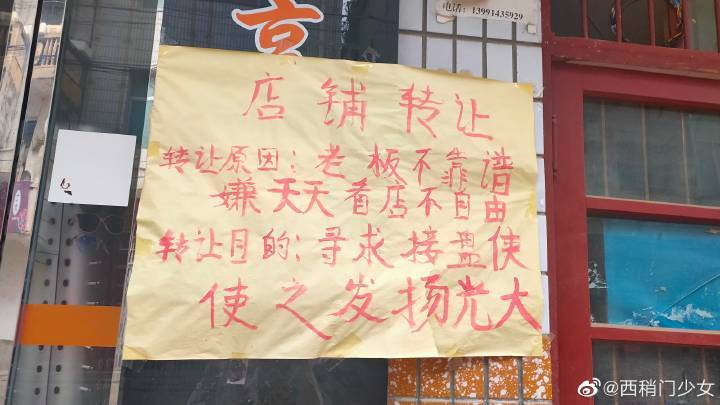 京
电话: 13991435929
店铺转让
转让原因: 老板不靠谱
嫌天天看店不自由
转让目的: 寻求接盘侠
使之发扬光大
@西稍门少女